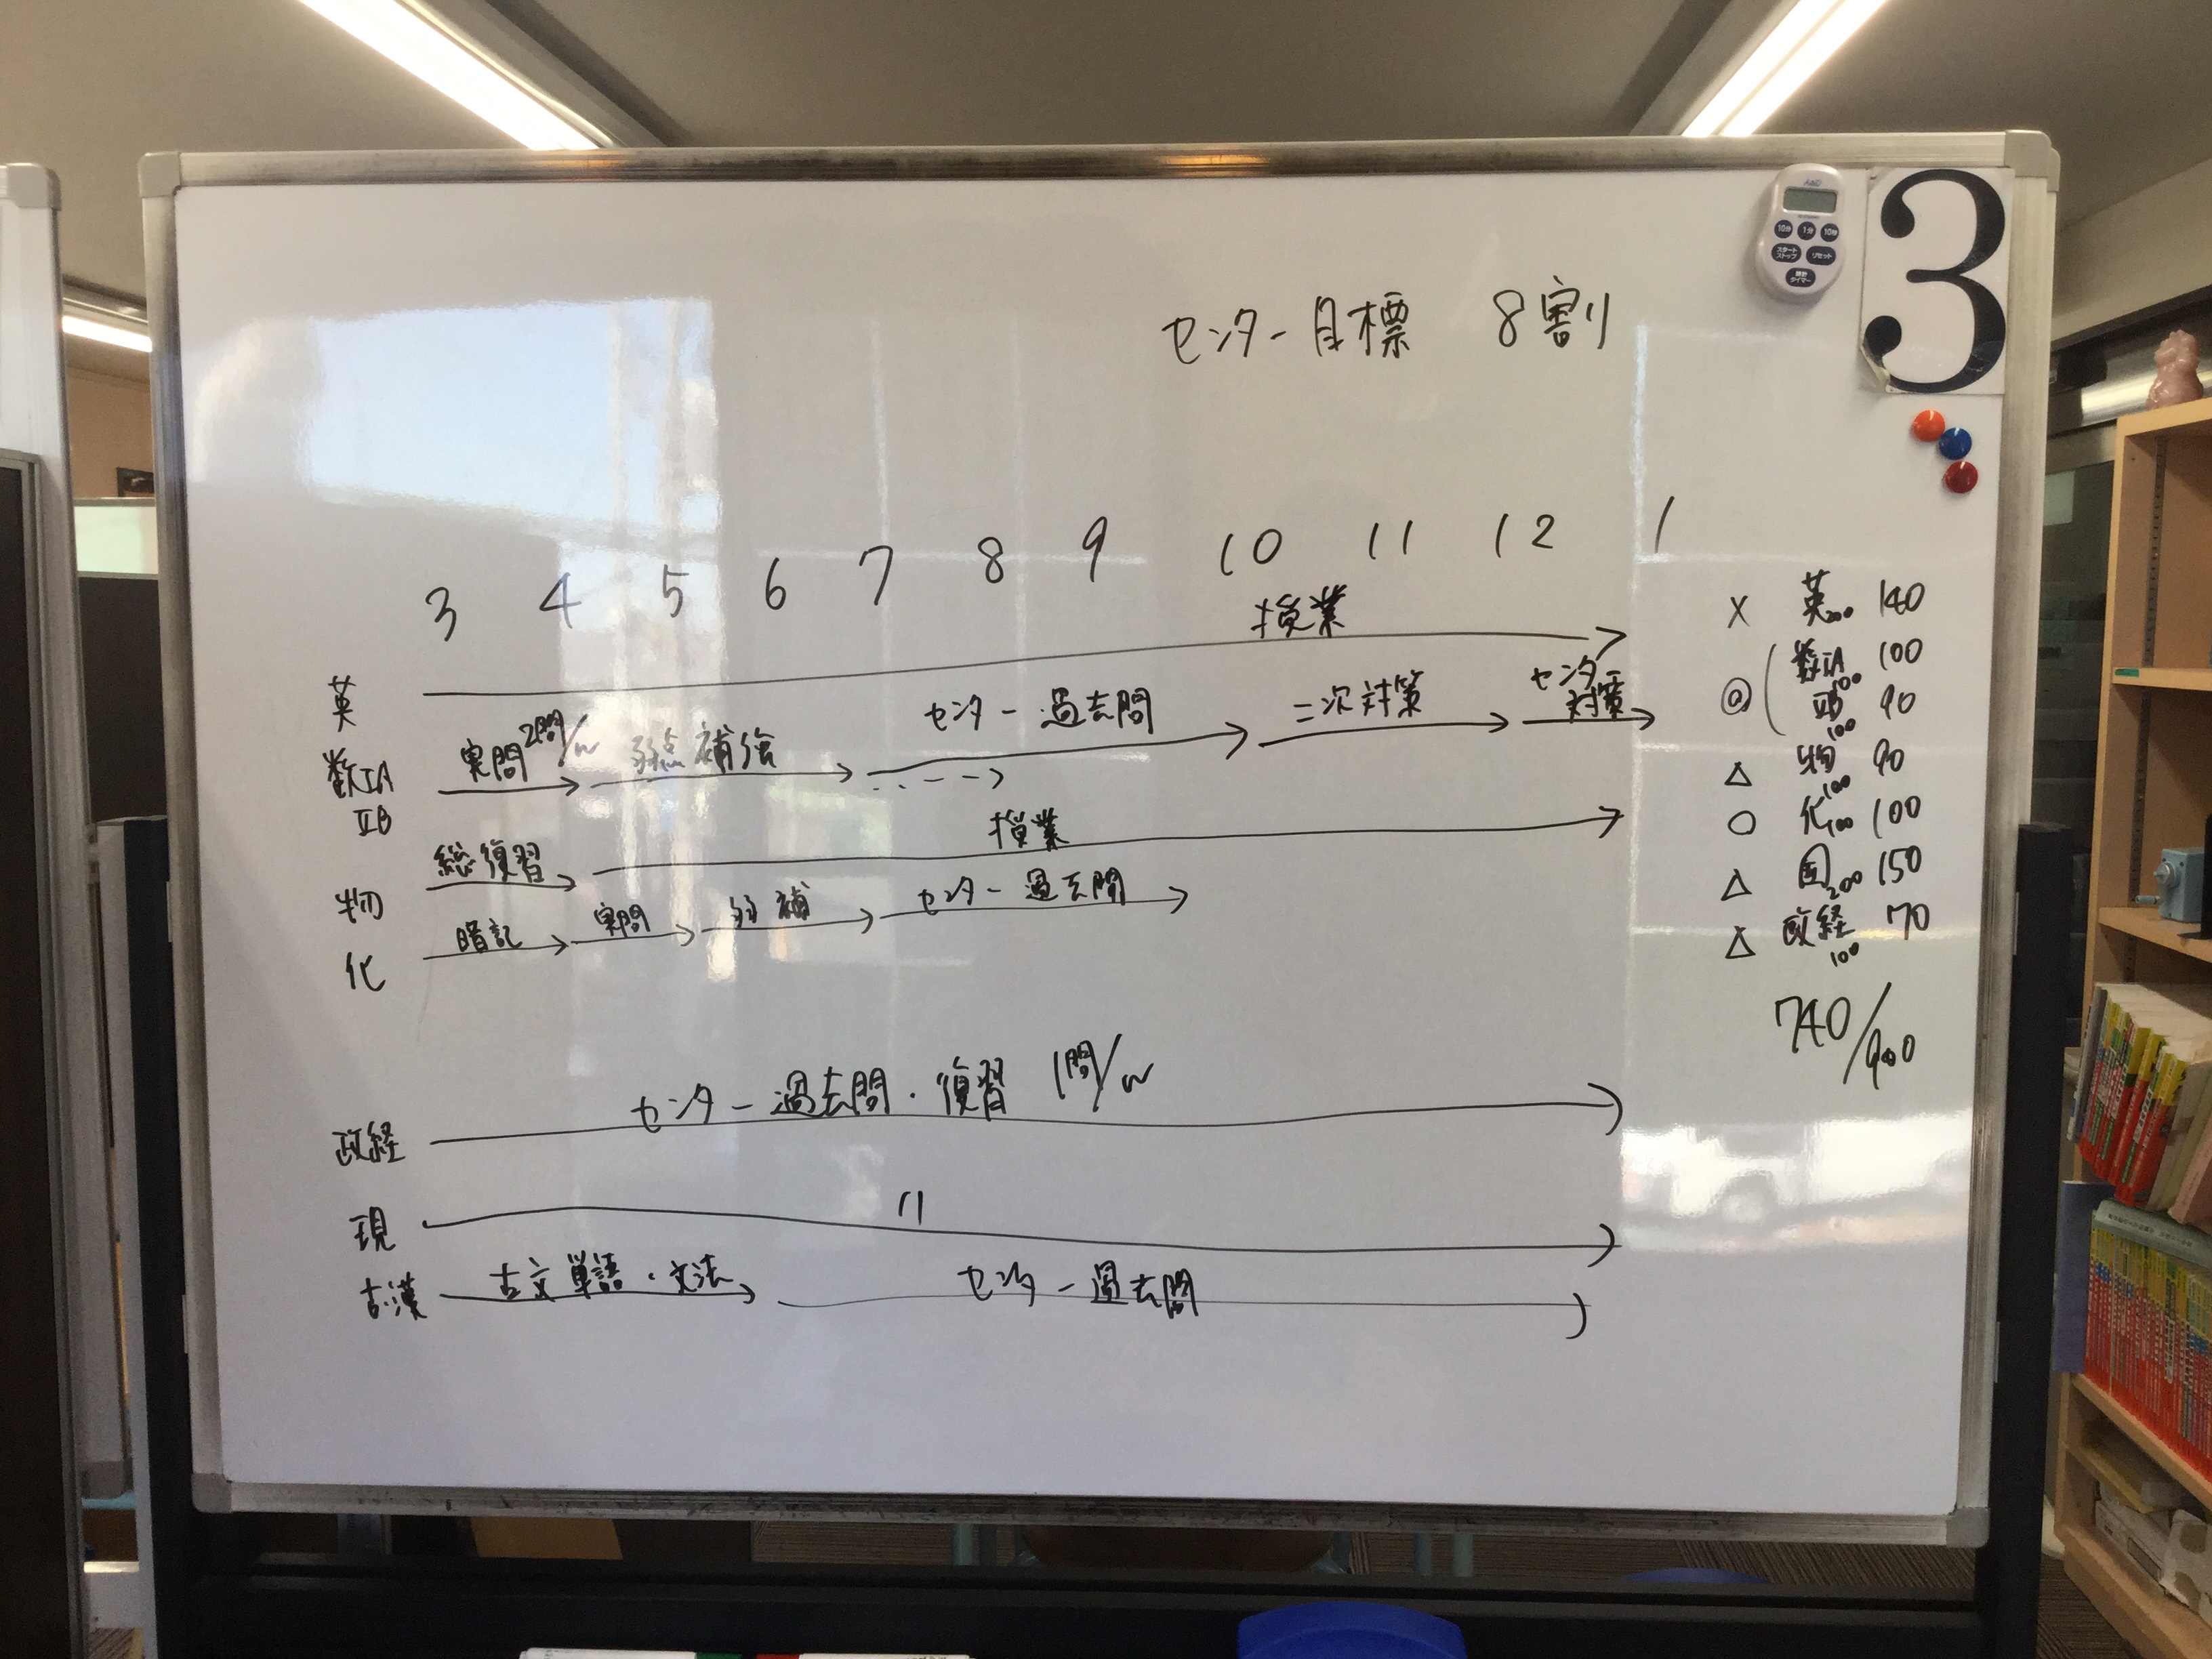 A&D
10分 1分 10秒
スタート
ストップ
リセット
3
センター目標 8割
3 4 5 6 7 8 9 10 11 12 1
英 授業
数IA 実問 2問/w 弱点補強 センター過去問 二次対策 センター対策
IIB
物 総復習 授業
化 暗記 実問 弱補 センター過去問
政経 センター過去問・復習 1問/w
現 〃
古漢 古文単語・文法 センター過去問
× 英200 140
◎ 数IA100 100
IIB100 90
△ 物100 90
○ 化100 100
△ 国200 150
△ 政経100 70
740/900